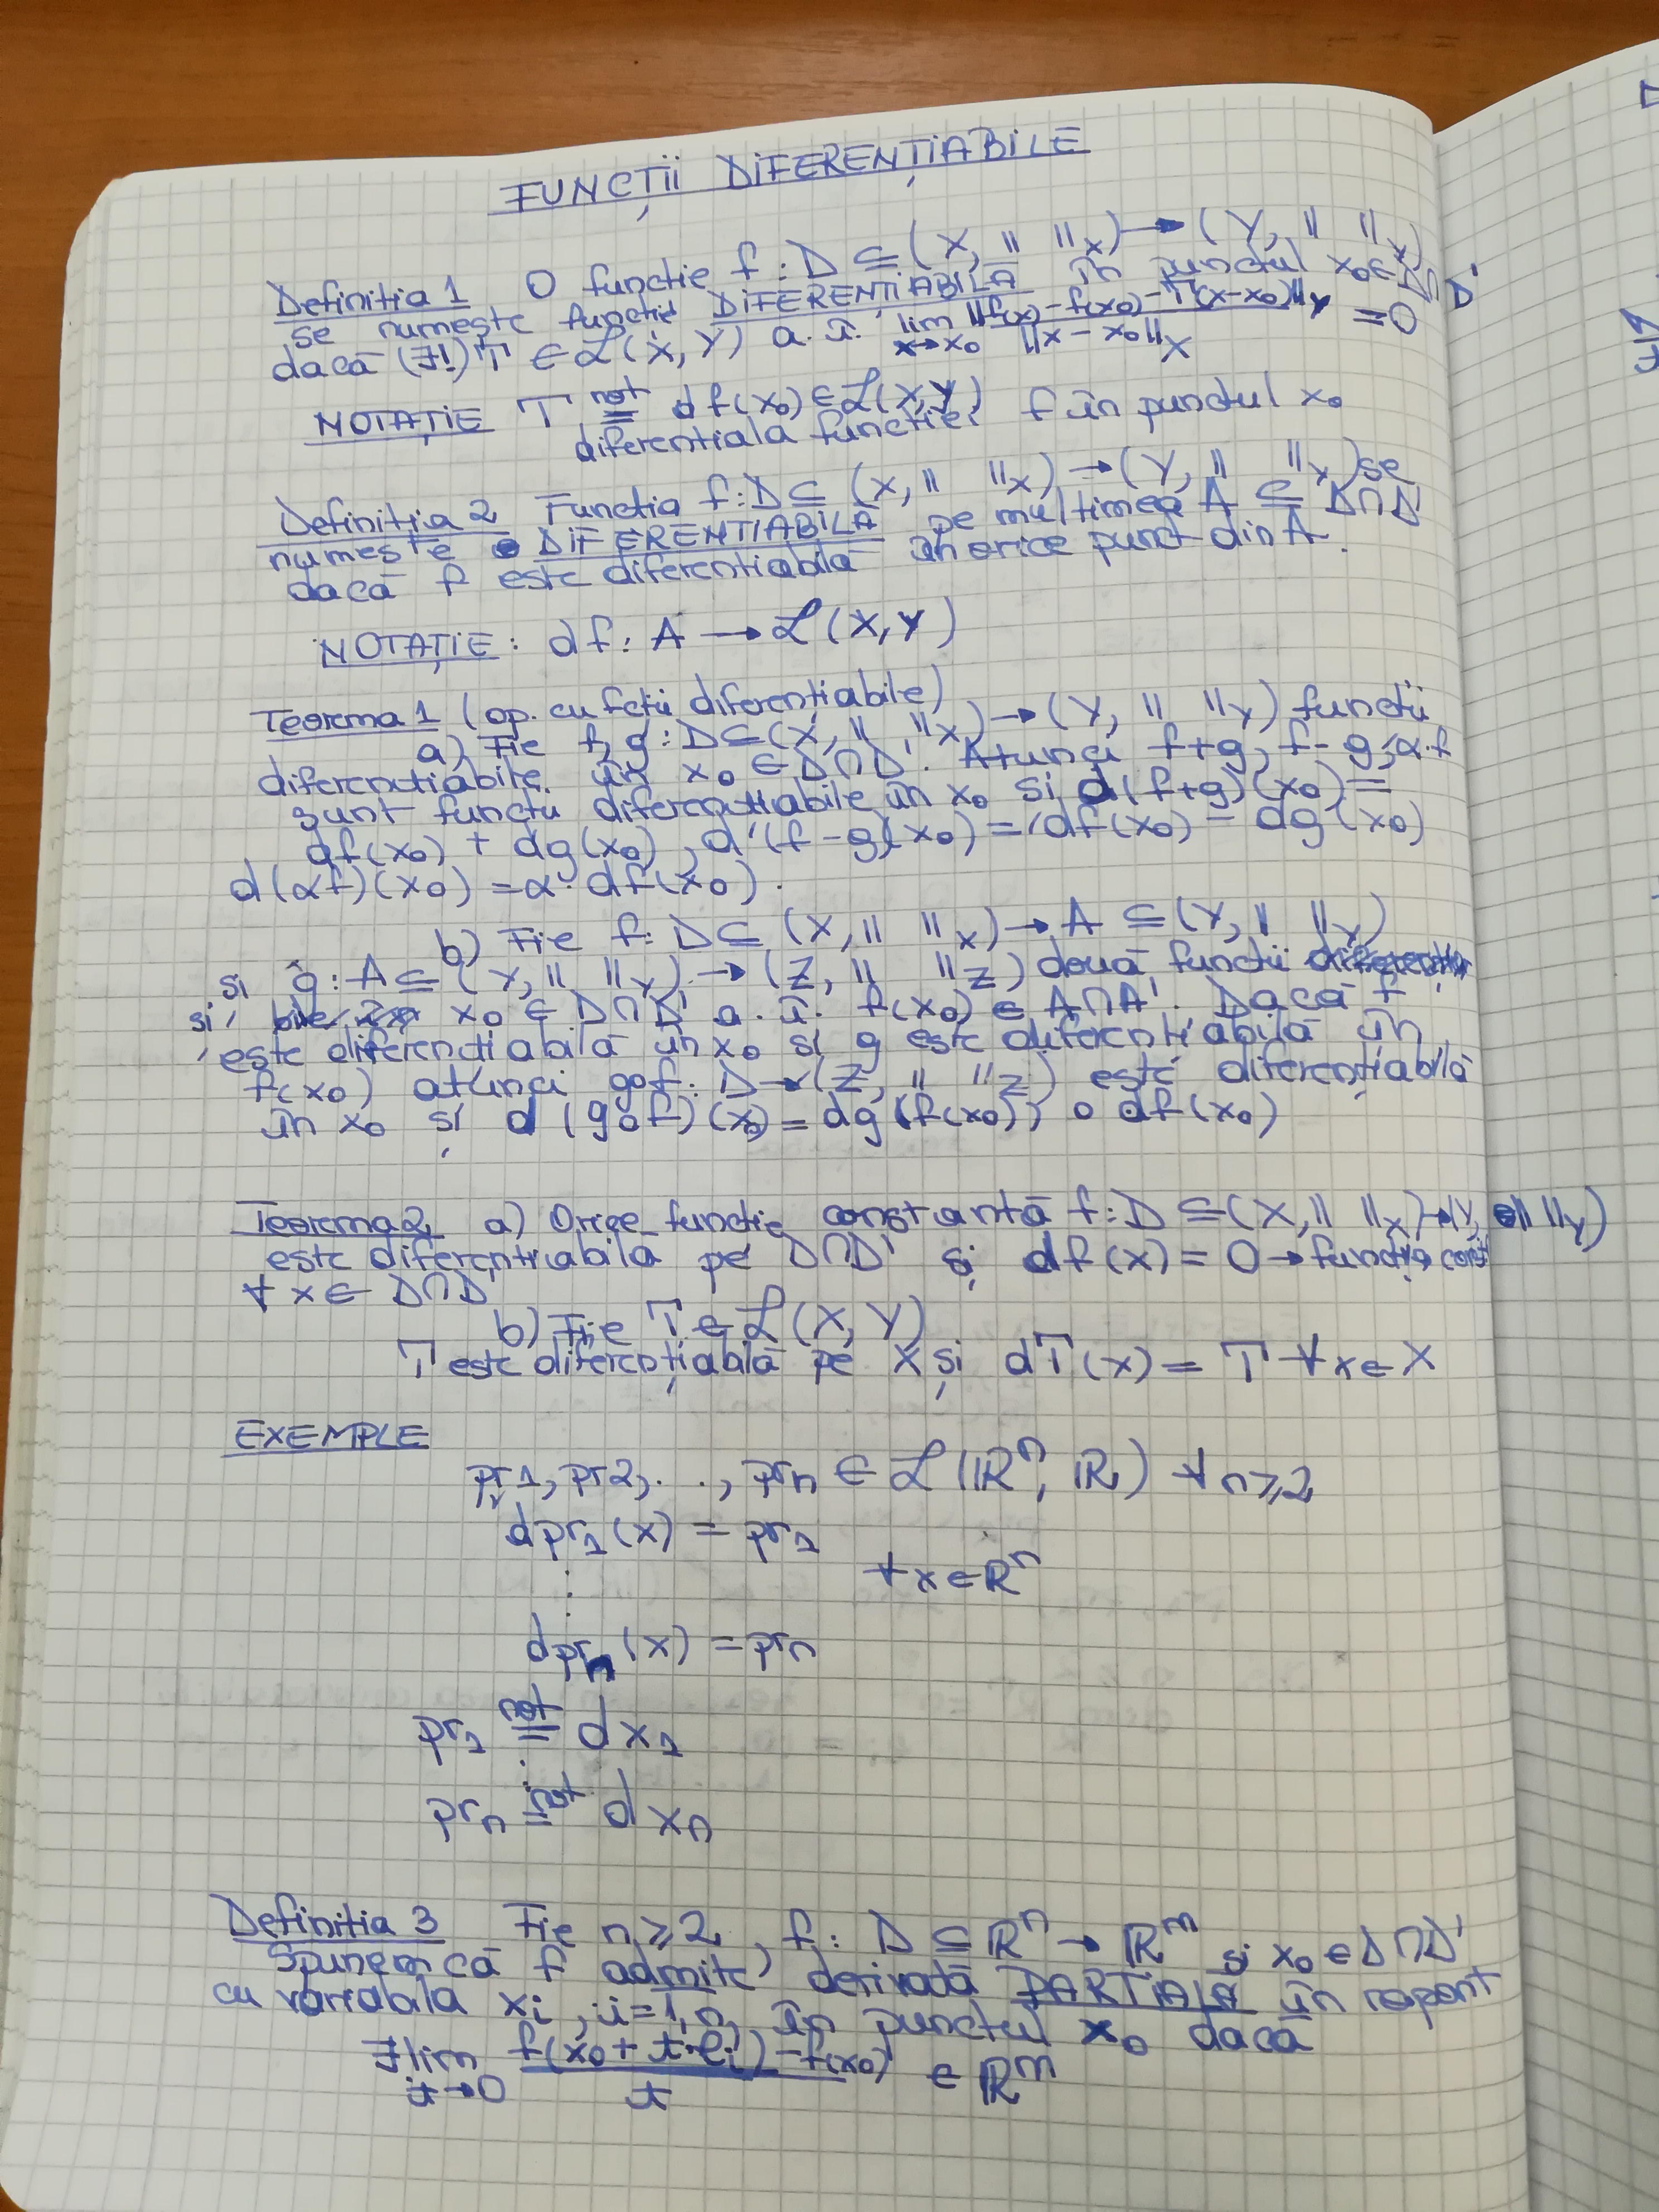 FUNCȚII DIFERENȚIABILE
Definiția 1 O funcție f : D ⊆ (X, || ||x) → (Y, || ||y)
se numește funcție DIFERENȚIABILĂ în punctul x₀ ∈ D∩D'
dacă (∃!) T ∈ ℒ(X, Y) a. î. lim x→x₀ ||f(x) - f(x₀) - T(x-x₀)||y / ||x - x₀||x = 0
NOTAȚIE T not= df(x₀) ∈ ℒ(X,Y)
diferentiala functiei f în punctul x₀
Definiția 2 Functia f : D ⊆ (X, || ||x) → (Y, || ||y) se
numește DIFERENTIABILĂ pe multimea A ⊆ D∩D'
dacă f este diferentiabilă în orice punct din A.
NOTAȚIE : df : A → ℒ(X,Y)
Teorema 1 (op. cu fcții diferențiabile)
a) Fie f, g : D ⊆ (X, || ||x) → (Y, || ||y) funcții
diferențiabile în x₀ ∈ D∩D'. Atunci f+g, f-g, α·f
sunt funcții diferențiabile în x₀ și d(f+g)(x₀) =
df(x₀) + dg(x₀), d(f-g)(x₀) = df(x₀) - dg(x₀)
d(αf)(x₀) = α·df(x₀).
b) Fie f : D ⊆ (X, || ||x) → A ⊆ (Y, || ||y)
și g : A ⊆ (Y, || ||y) → (Z, || ||z) două funcții
și x₀ ∈ D∩D' a. î. f(x₀) ∈ A∩A'. Dacă f
este diferențiabilă în x₀ și g este diferențiabilă în
f(x₀) atunci g∘f : D → (Z, || ||z) este diferențiabilă
în x₀ și d(g∘f)(x₀) = dg(f(x₀)) ∘ df(x₀)
Teorema 2 a) Orice funcție constantă f : D ⊆ (X, || ||x) → (Y, || ||y)
este diferențiabilă pe D∩D' și df(x) = 0 → funcția const
∀ x ∈ D∩D'
b) Fie T ∈ ℒ(X, Y)
T este diferențiabilă pe X și dT(x) = T ∀ x ∈ X
EXEMPLE
pr1, pr2, ..., prn ∈ ℒ(ℝⁿ, ℝ) ∀ n ≥ 2
dpr₁(x) = pr₁
⋮ ∀ x ∈ ℝⁿ
dprₙ(x) = prₙ
pr₁ not= dx₁
⋮
prₙ not= dxₙ
Definitia 3 Fie n ≥ 2, f : D ⊆ ℝⁿ → ℝᵐ și x₀ ∈ D∩D'
Spunem că f admite derivată PARȚIALĂ în raport
cu variabila xi, i=1,n, în punctul x₀ dacă
∃ lim t→0 f(x₀ + t·ei) - f(x₀) / t ∈ ℝᵐ